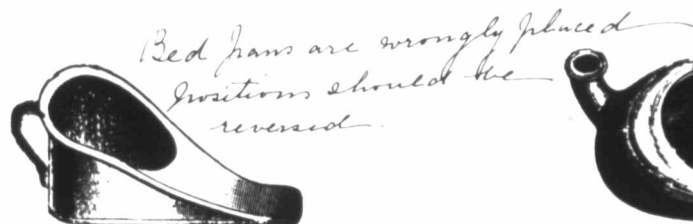 Bed pans are wrongly placed
positions should be
reversed.